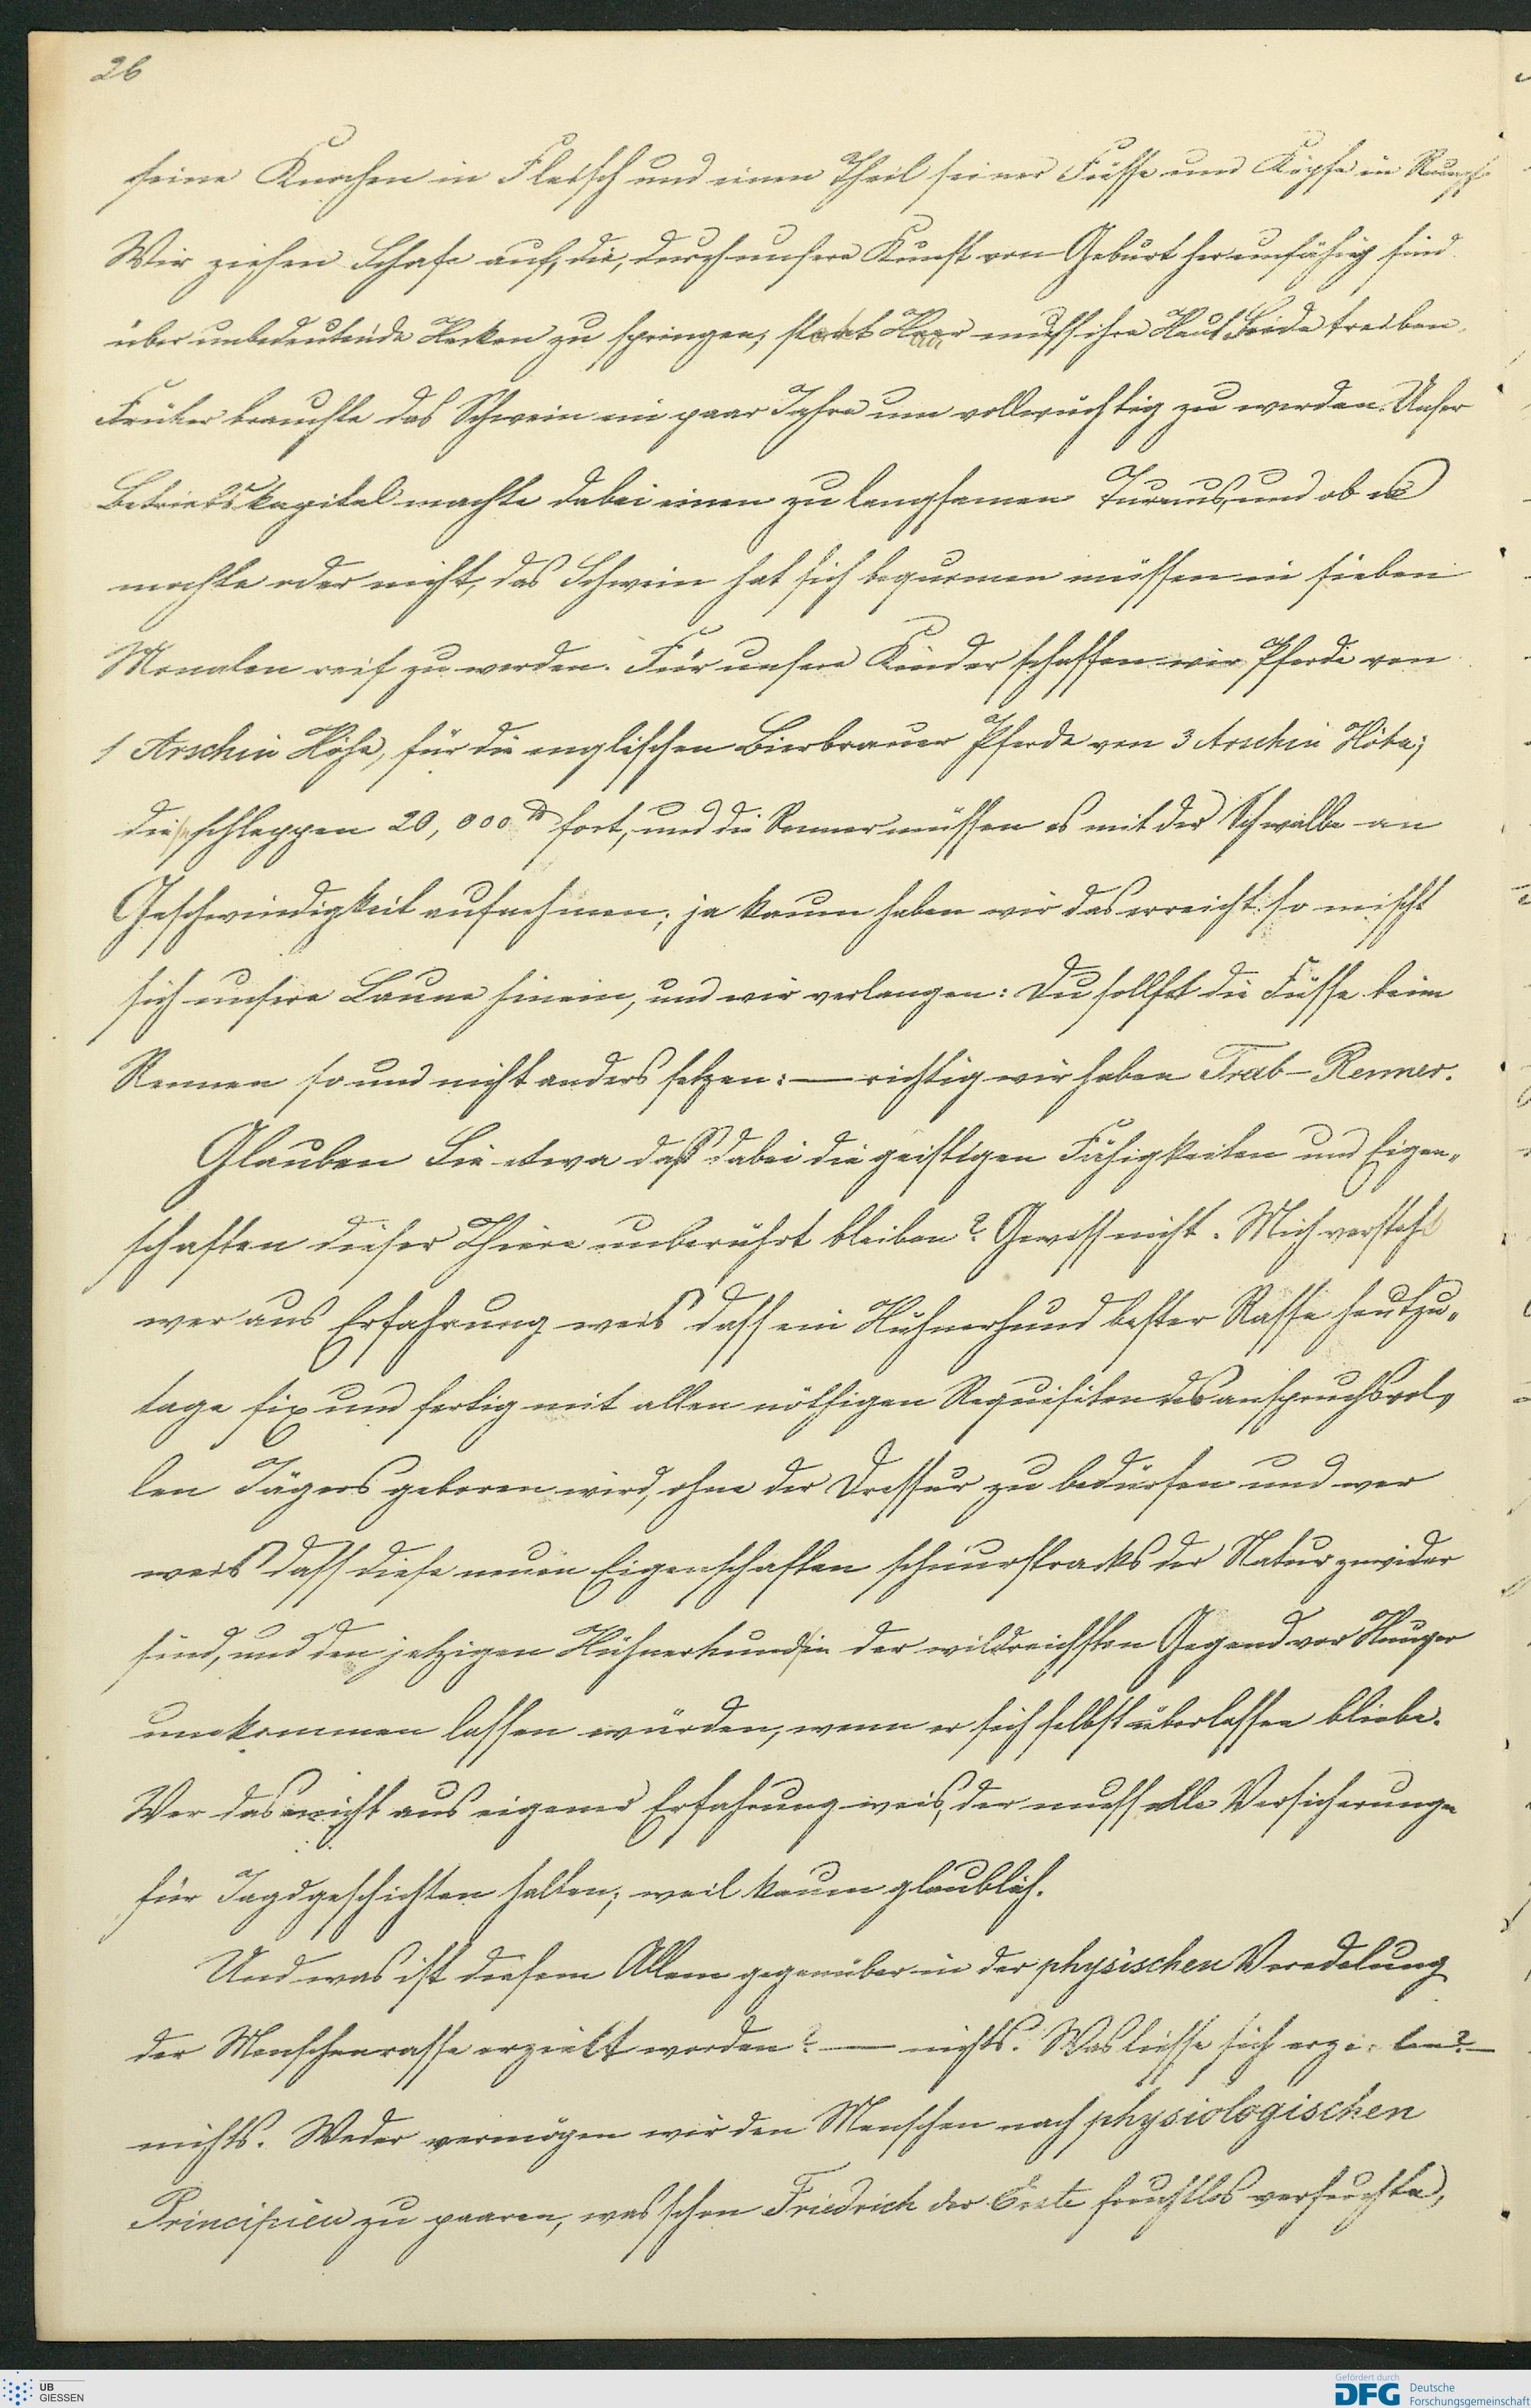 26
seine Knochen in Fleisch und einen Theil seiner Füsse und Köpfe in Rumpf.
Wir ziehen Schafe auf, die, durch unsere Kunst von Geburt her unfähig sind
über unbedeutende Hecken zu springen; statt Haar muss ihre Haut Seide treiben.
Früher brauchte das Schwein ein paar Jahre um vollwüchtig zu werden. Unser
Betriebskapital machte dabei einen zu langsamen Turnus, und ob es
mochte oder nicht, das Schwein hat sich bequemen müssen in sieben
Monaten reif zu werden. Für unsere Kinder schaffen wir Pferde von
1 Arschin Höhe, für die englischen Bierbrauer Pferde von 3 Arschin Höhe;
diese schleppen 20,000 ℔ fort, und die Renner müssen es mit der Schwalbe an
Geschwindigkeit aufnehmen; ja kaum haben wir das erreicht so mischt
sich unsere Laune hinein, und wir verlangen: Du sollst die Füsse beim
Rennen so und nicht anders setzen: — richtig wir haben Trab-Renner.
Glauben Sie etwa daß dabei die geistigen Fähigkeiten und Eigen„
schaften dieser Thiere unberührt bleiben? Gewiss nicht. Mich versteht
wer aus Erfahrung weis dass ein Huhnerhund bester Rasse heutzu„
tage fix und fertig mit allen nöthigen Requisiten des anspruchsvol„
len Jägers geboren wird, ohne der Dressur zu bedürfen und wer
weis dass diese neuen Eigenschaften schnurstracks der Natur zuwider
sind, und den jetzigen Hühnerhund in der wildreichsten Gegend vor Hunger
umkommen lassen würden, wenn er sich selbst überlassen bliebe.
Wer das nicht aus eigener Erfahrung weis, der muss alle Versicherungen
für Jagdgeschichten halten; weil kaum glaublich.
Und was ist diesem Allem gegenüber in der physischen Veredelung
der Menschenrasse erzielt worden? — nichts. Was liesse sich erzielen? —
nichts. Weder vermögen wir den Menschen nach physiologischen
Principien zu paaren, was schon Friedrich der Erste fruchtlos versuchte,
UB
GIESSEN
Gefördert durch
DFG Deutsche
Forschungsgemeinschaft